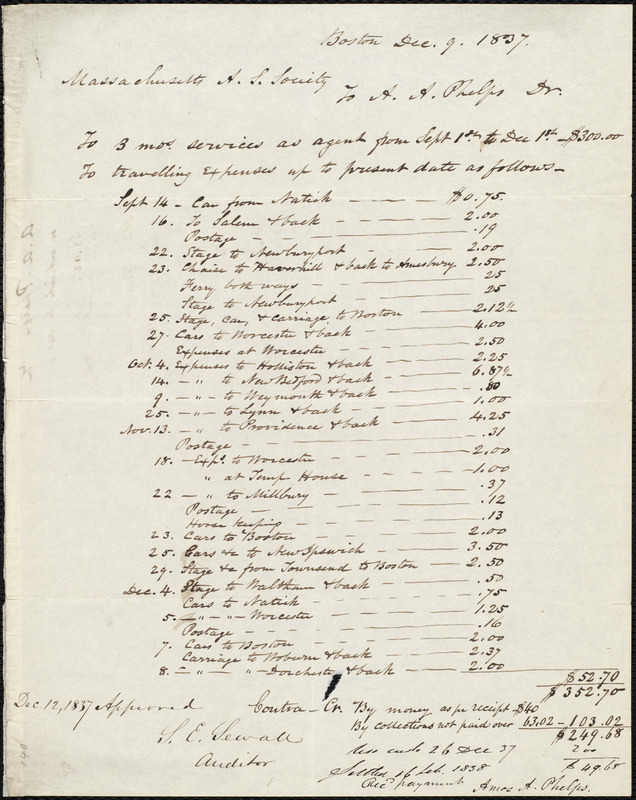 Boston Dec. 9. 1837.
Massachusetts A. S. Society
To A. A. Phelps Dr.
To 3 mos. services as agent from Sept 1st to Dec 1st - $300.00
To travelling Expenses up to present date as follows -
Sept 14 - Car from Natick - $0.75.
16. To Salem & back - 2.00
Postage - .19
22. Stage to Newburyport - 2.00
23. Chaize to Haverhill & back to Amesbury. 2.50
Ferry both ways - 25
Stage to Newburyport - 25
25. Stage, Car, & Carriage to Boston - 2.12½
27. Cars to Worcester & back - 4.00
Expenses at Worcester - 2.50
Oct. 4. Expenses to Holliston & back - 2.25
14. - " to New Bedford & back - 6.87½
9. - " - to Weymouth & back - .80
25. - " - to Lynn & back - 1.00
Nov. 13. - " to Providence & back - 4.25
Postage - .31
18. - Exps. to Worcester - 2.00
" at Temp House - 1.00
22 - " to Millbury - .37
Postage - .12
Horse keeping - .13
23. Cars to Boston - 2.00
25. Cars &c to New Ipswich - 3.50
29. Stage &c from Townsend to Boston - 2.50
Dec. 4. Stage to Waltham & back - .50
Cars to Natick - .75
5. - " - " - Worcester - 1.25
Postage - .16
7. Cars to Boston - 2.00
Carriage to Woburn & back - 2.37
8. - " - " - Dorchester & back - 2.00
$52.70
$352.70
Dec. 12, 1837 Approved
S. E. Sewall
Auditor
Contra - Cr. By money as pr receipt - $40
By collections not paid over 63.02 - 103.02
$249.68
less cash 26 Dec 37 200
$49.68
Settled 16 Feb. 1838
Recd payment Amos A. Phelps.